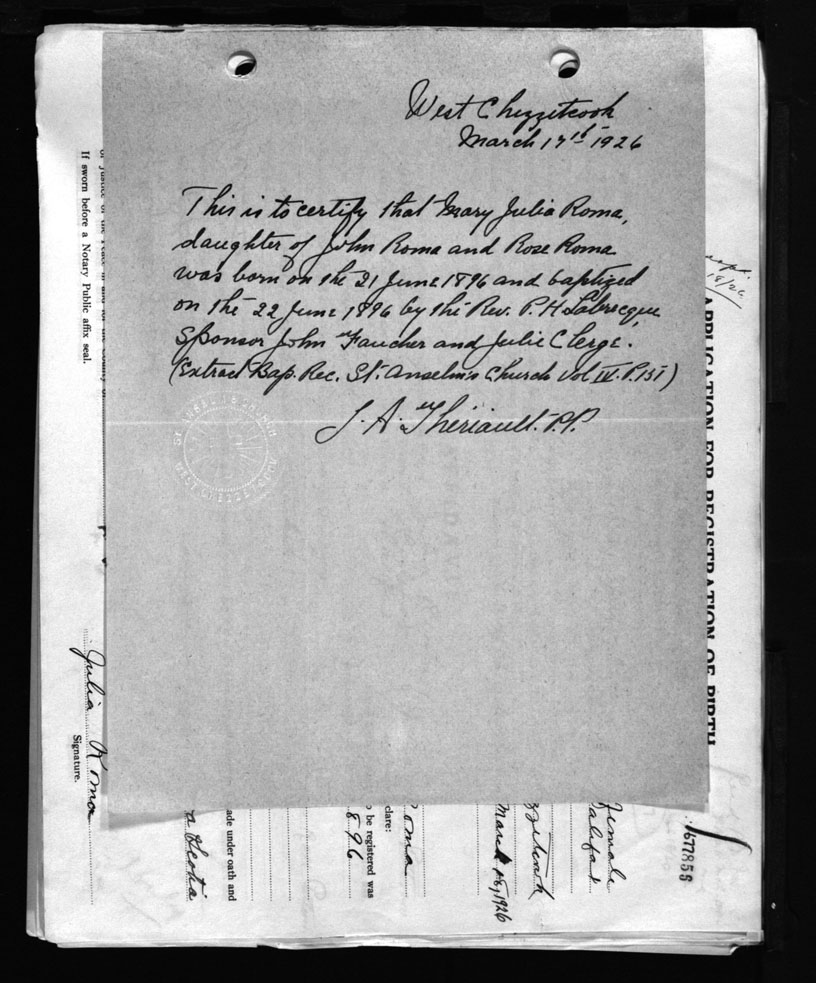 West Chezzetcook
March 17th 1926
This is to certify that Mary Julia Roma,
daughter of John Roma and Rose Roma
was born on the 21 June 1896 and baptized
on the 22 June 1896 by the Rev. P. H Labrecque,
Sponsor John Faucher and Julie Clergé.
(Extract Bap. Rec. St. Anselm's Church Vol IV. P.151)
J. A. Thériault. P.P.
If sworn before a Notary Public affix seal.
Julia Roma
Signature.
APPLICATION FOR REGISTRATION OF BIRTH
18/26
1677856
Female
Halifax
March 18, 1926
oma
clare:
o be registered was
896
ade under oath and
a Scotia